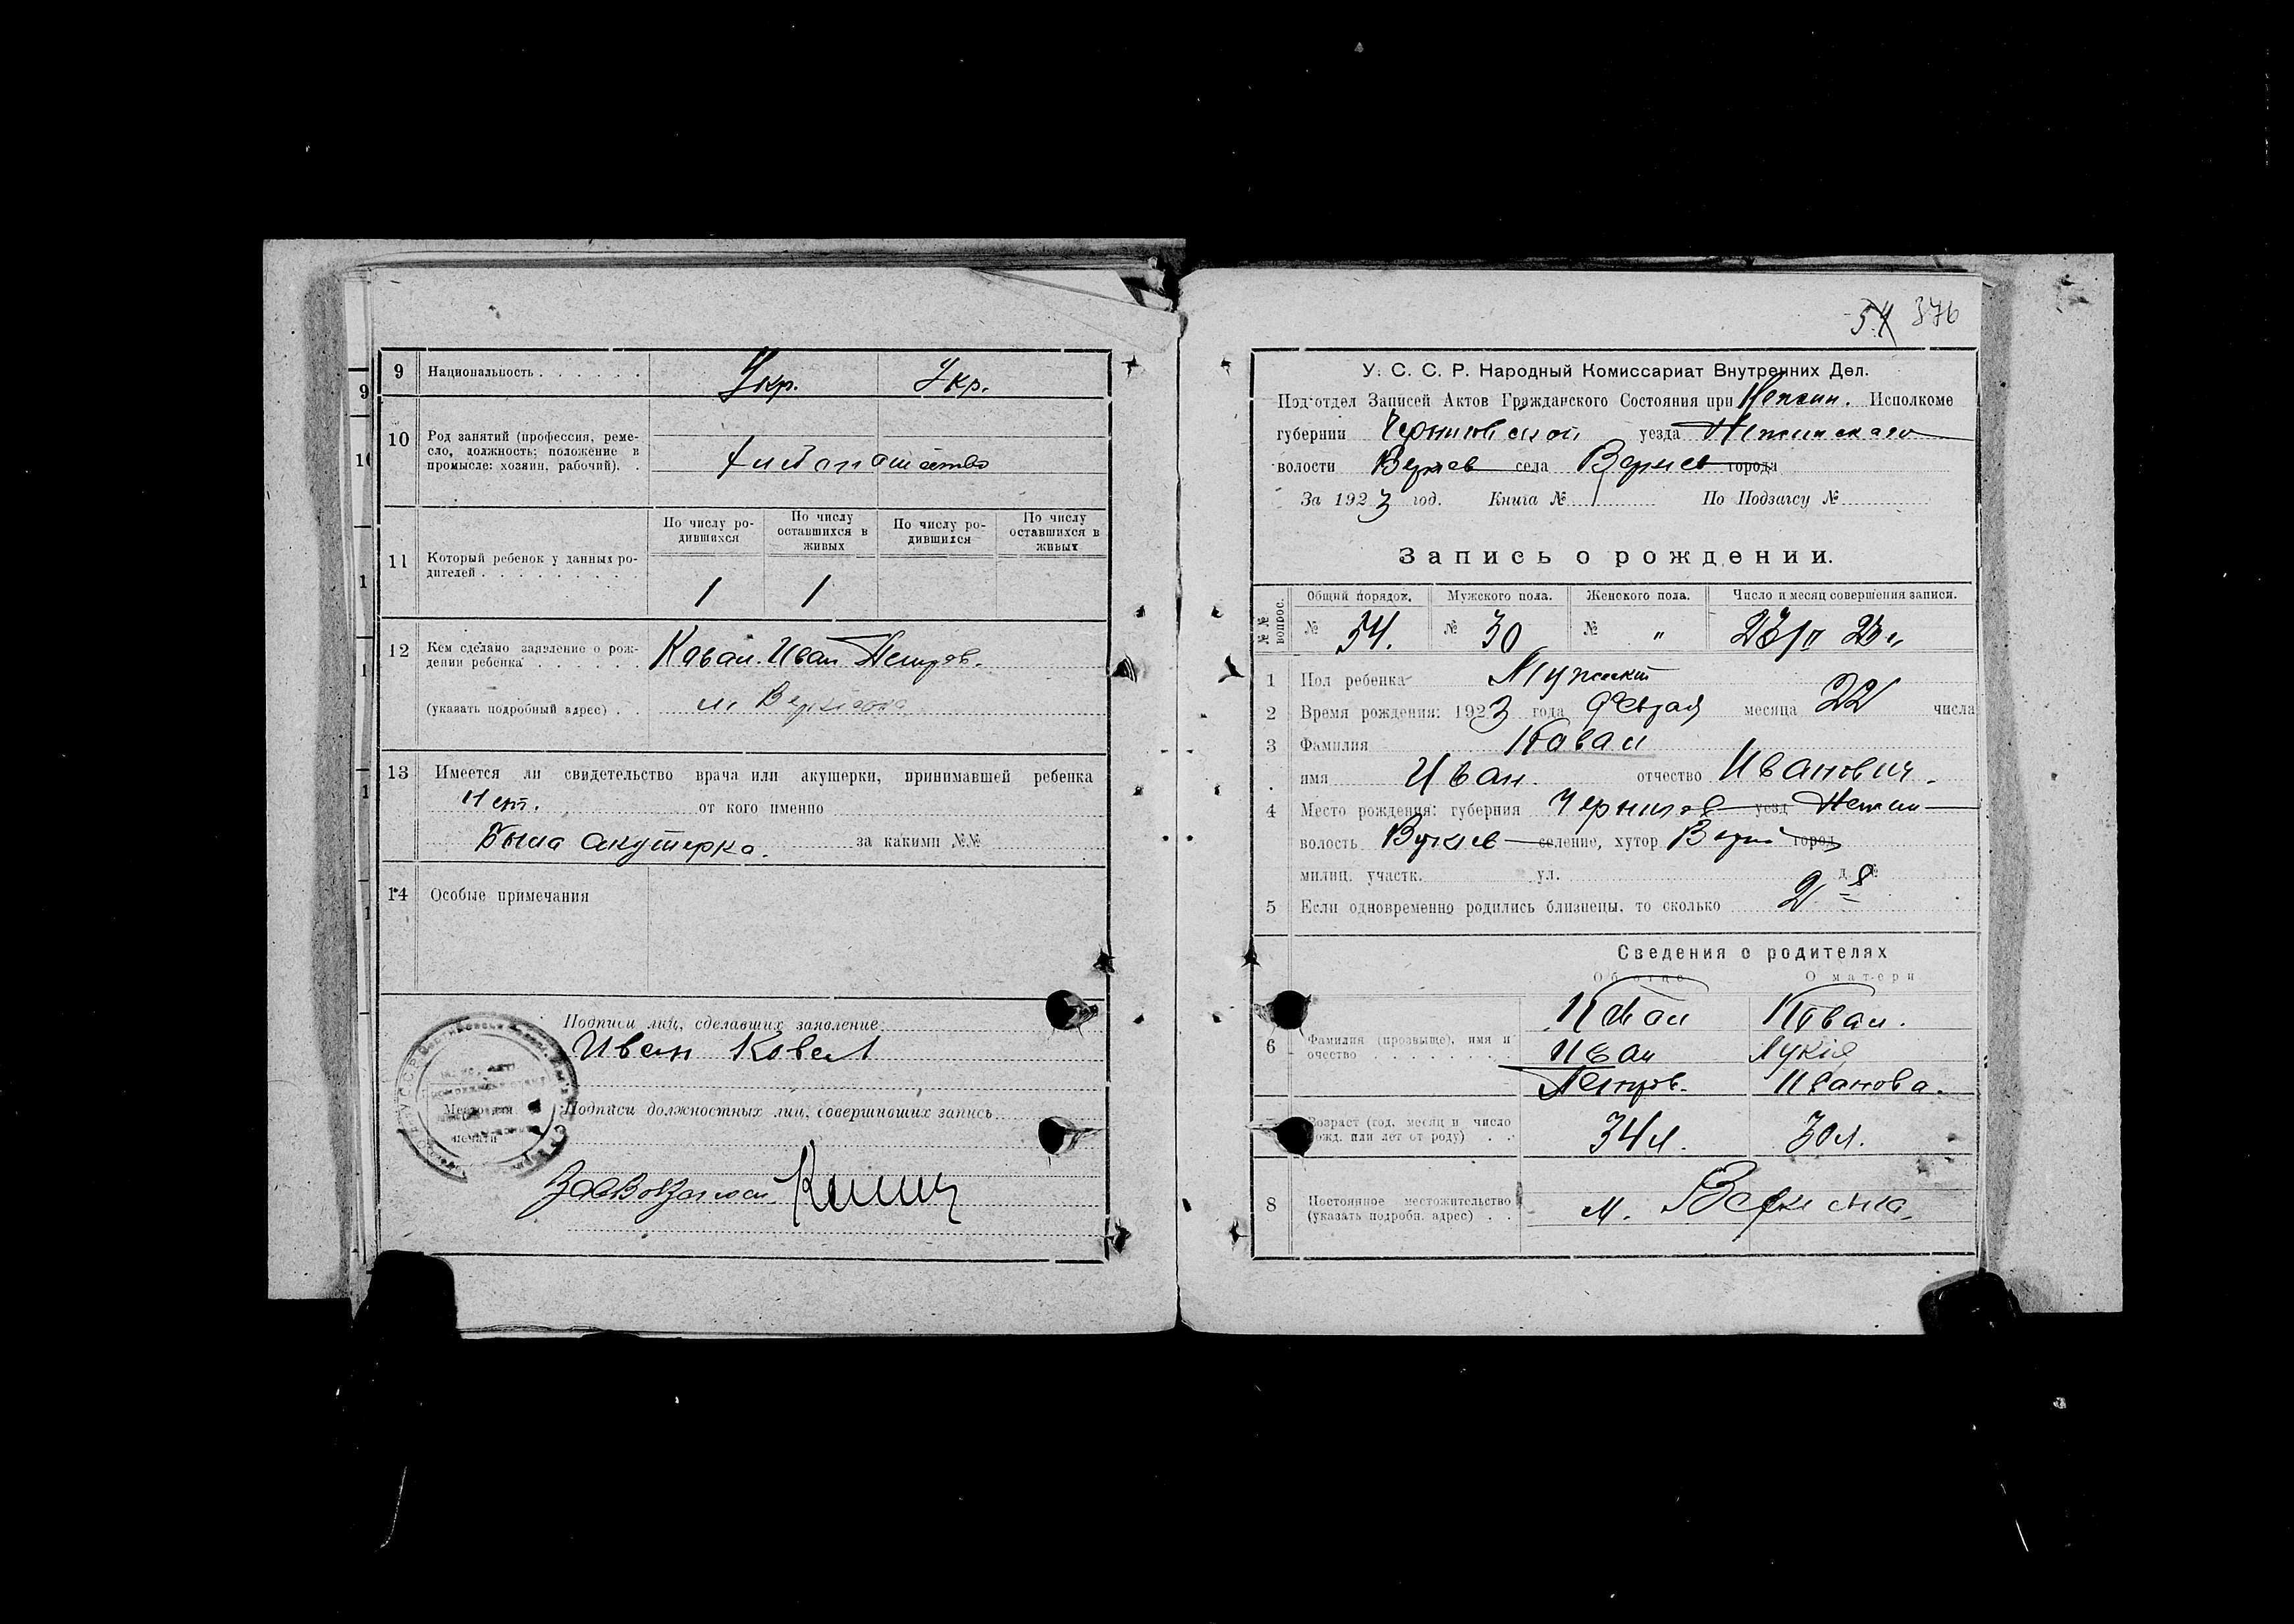 9 Национальность . . . . . . Укр. Укр.
10 Род занятий (профессия, реме-
сло, должность; положение в
промысле: хозяин, рабочий). . хлебопашество
11 Который ребенок у данных ро-
дителей . . . . . . . . .
По числу ро-
дившихся
По числу
оставшихся в
живых
По числу ро-
дившихся
По числу
оставшихся в
живых
1 1
12 Кем сделано заявление о рож-
дении ребенка . . . . . . Ковал. Иван Петров.
(указать подробный адрес) . . м.
13 Имеется ли свидетельство врача или акушерки, принимавшей ребенка
нет. от кого именно
Была акушерка. за какими №№
14 Особые примечания
Подписи лиц, сделавших заявление
Иван Ковал
Подписи должностных лиц, совершивших запись
Место для
печати
54 376
У. С. С. Р. Народный Комиссариат Внутренних Дел.
Под'отдел Записей Актов Гражданского Состояния при Нежин. Исполкоме
губернии Черниговской уезда Нежинского
волости Веркиев села Веркиев города
За 1923 год. Книга № 1 По Подзагсу №
Запись о рождении.
№№ вопрос.
Общий порядок. Мужского пола. Женского пола. Число и месяц совершения записи.
№ 54. № 30 № " 23/II 23 г.
1 Пол ребенка Мужский
2 Время рождения: 1923 года Феврал месяца 22 числа
3 Фамилия Ковал
имя Иван. отчество Иванович.
4 Место рождения: губерния Чернигов уезд Нежин
волость Веркиев селение, хутор Верк город
милиц. участк. ул. д. №
5 Если одновременно родились близнецы, то сколько
Сведения о родителях
О б о т ц е О м а т е р и
6 Фамилия (прозвище), имя и
очество . . . . . . . .
Ковал Ковал.
Иван Лукія
Петров. Иванова.
Возраст (год, месяц и число
рожд. или лет от роду) . . 34 л. 30 л.
8 Постоянное местожительство
(указать подробн. адрес) . . м.